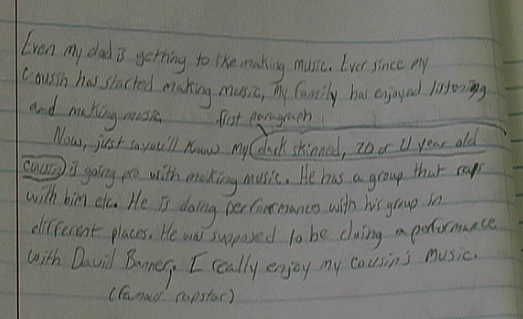 Even my dad is getting to like making music. Ever since my
cousin has started making music, my family has enjoyed listening
and making music first paragraph
Now, just so you'll know my dark skinned, 20 or 21 year old
cousin is going pro with making music. He has a group that raps
with him etc. He is doing performances with his group in
different places. He was supposed to be doing a performance
with David Banner, I really enjoy my cousin's music.
(famous rapstar)